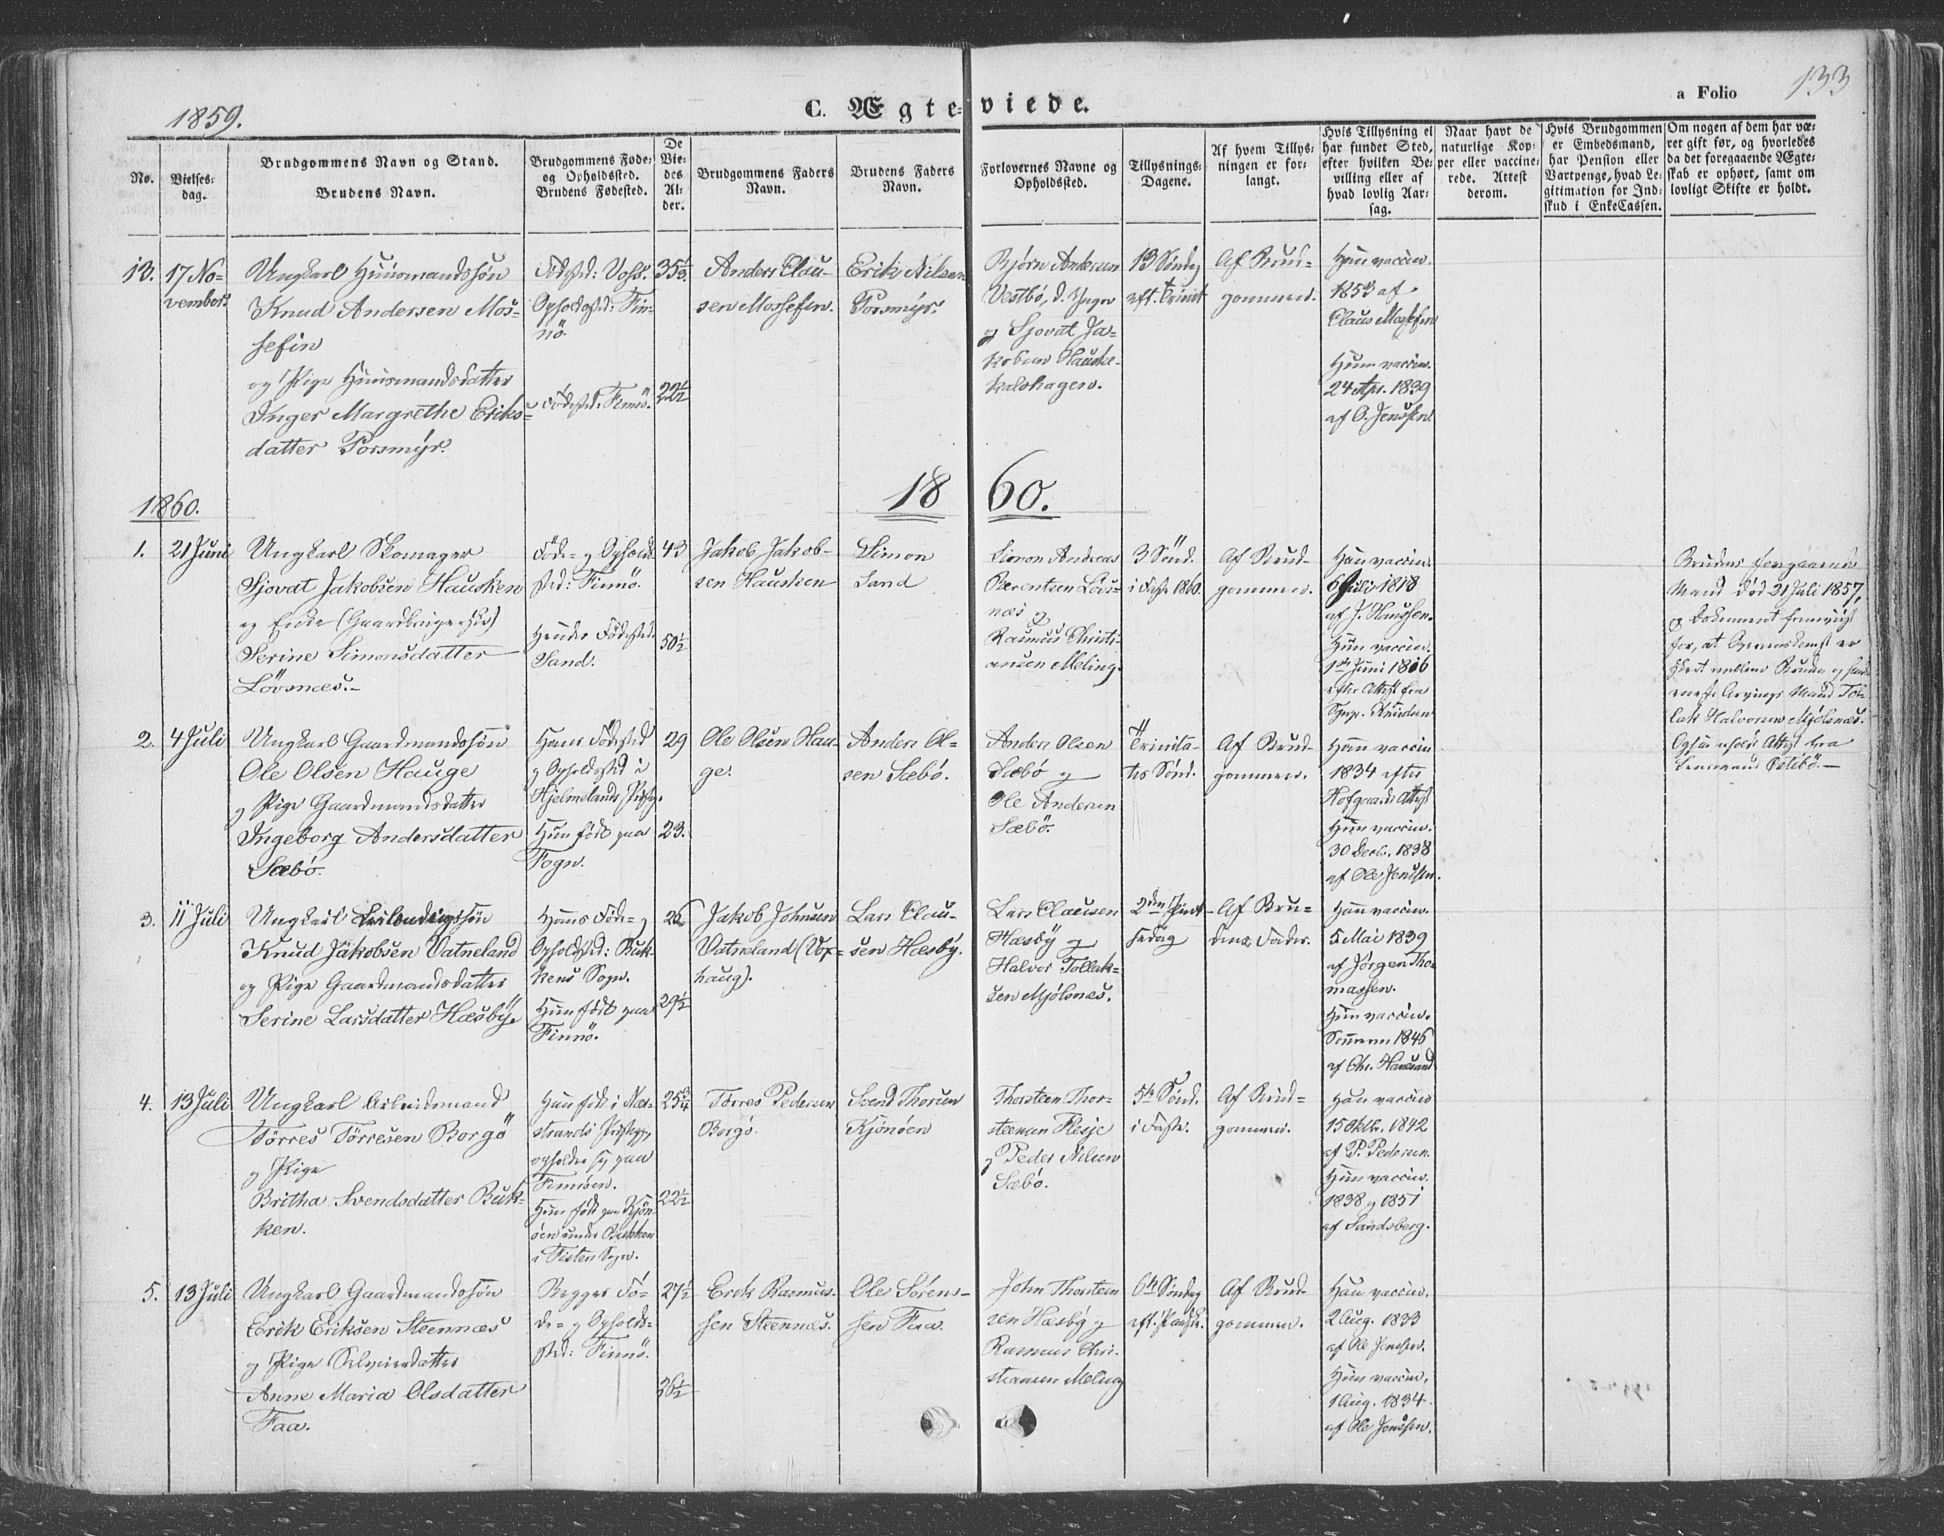 1859.
C. Ægteviede.
a Folio 133
No.
Vielses-
dag.
Brudgommens Navn og Stand.
Brudens Navn.
Brudgommens Føde-
og Opholdssted.
Brudens Fødested.
De
Vie-
des
Al-
der.
Brudgommens Faders
Navn.
Brudens Faders
Navn.
Forlovernes Navne og
Opholdssted.
Tillysnings-
Dagene.
Af hvem Tillys-
ningen er for-
langt.
Hvis Tillysning ei
har fundet Sted,
efter hvilken Be-
villing eller af
hvad lovlig Aar-
sag.
Naar havt de
naturlige Kop-
per eller vaccine-
rede. Attest
derom.
Hvis Brudgommen
er Embedsmand,
har Pension eller
Vartpenge, hvad Le-
gitimation for Ind-
skud i EnkeCassen.
Om nogen af dem har væ-
ret gift før, og hvorledes
da det foregaaende Ægte-
skab er ophørt, samt om
lovligt Skifte er holdt.
17 No-
vember.
Ungkarl Huusmandssøn
Knud Andersen Mos-
sefin
og Pige Huusmandsdatter
Inger Margrethe Eriks-
datter Porsmyr.
Fødested: Voss.
Opholdssted: Fin-
nö
Födested: Finnö.
35½
22½
Anders Clau-
sen Mossefin.
Erik Nilsen
Porsmyr.
Bjørn Andersen
Vestbö,
og Sjovat Ja-
kobsen Hauske-
kalshagen.
13 Søndag
eft. Trinit
Af Brud-
gommen.
Han vaccin.
1853 af
Claus Mossefin
Hun vaccin.
24 Apr. 1839
af O. Jenssen.
1860.
1860.
1.
21 Juni
Ungkarl Skomager
Sjovat Jakobsen Hausken
og Enke (Gaardbrugerske)
Serine Simonsdatter
Lövsnæs.
Föde- og Opholds
sted: Finnö.
Hendes Födested.
Sand.
43
50½
Jakob Jakob-
sen Hausken
Simon
Sand
Simon Andreas
Bærentsen Lövs-
næs og
Rasmus Christi-
ansen Meling.
3 Sönd.
i Faste 1860.
Af Brud-
gommen.
Han vaccin.
6 Juli 1818
af J. Hausken.
Hun vaccin.
1 Juni 1816
efter Attest fra
Knudsen
Brudens foregaaende
Mand död 21 Juli 1857,
og Dokument fremviist
for, at
skeet mellem Bruden og hendes
Arvinger Mand Tol-
lak Halvorsen Mjölsnæs.
Attest fra
Lensmand
2.
4 Juli
Ungkarl Gaardmandssøn
Ole Olsen Hauge
og Pige Gaardmandsdatter
Ingeborg Andersdatter
Sæbö.
Hans Födested
og Opholdssted i
Hjelmelands Præstegj.
Hun födt paa
Fogn.
29
23.
Ole Olsen Hau-
ge.
Anders Ol-
sen Sæbö.
Anders Olsen
Sæbö og
Ole Andersen
Sæbö.
Trinita-
tis Sönd.
Af Brud-
gommen.
Han vaccin
1834 efter
Hofgaards Attest
Hun vaccin.
30 Decb. 1838
af Ole Jenssen.
3.
11 Juli
Ungkarl Leilændingssøn
Knud Jakobsen Vatneland
og Pige Gaardmandsdatter
Serine Larsdatter Hæsby.
Hans Föde- og
Opholdssted: Buk-
kens Sogn.
Hun födt paa
Finnö.
26
29½
Jakob Johnsen
Vatneland (Vox-
haug).
Lars Clau-
sen Hæsby.
Lars Clausen
Hæsby og
Halvor Tollak-
sen Mjölsnæs.
2den Pint-
sedag
Af Bru-
dens Fader.
Han vaccin.
5 Mai 1839
af Jörgen Tho-
massen.
Hun vaccin.
Sommeren 1846
af Chr. Haaesand
4.
13 Juli
Ungkarl Arbeidsmand
Törres Törresen Borgö
og Pige
Britha Svendsdatter Buk-
ken.
Han födt i Ner-
strands Præstegj.,
opholder sig paa
Finnöen.
Hun födt paa Kjön-
öen under Bukken
i Fister Sogn.
25¾
22½
Törres Pedersen
Borgö.
Svend Thorsen
Kjönöen
Thorsteen Thor-
steensen Flesje
og Peder Nilsen
Sæbö.
5te Sönd.
i Faste.
Af Brud-
gommen.
Han vaccin
15 Oktbr. 1842
af P. Pedersen.
Hun vaccin.
1838 og 1851
af Sandsberg.
5.
13 Juli
Ungkarl Gaardmandssøn
Erik Eriksen Steennæs
og Pige Selveierdatter
Anne Maria Olsdatter
Faa.
Begges Fö-
de- og Opholds-
sted: Finnö.
27½
26½
Erik Rasmus-
sen Steennæs.
Ole Sörens-
sen Faa.
John Thorsteen
sen Hæsby og
Rasmus Chri-
stiansen Meling
6te Søndag
eft. Paaske.
Af Brud-
gommen.
Han vaccin.
2 Aug. 1833
af Ole Jenssen.
Hun vaccin.
1 Aug. 1834
af Ole Jenssen.